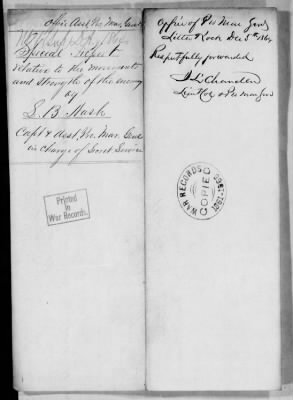 Offic Asst Pr. Mar. Genl
Special Report
relative to the movements
and strengths of the enemy
by
S. B. Nash
Capt & Asst. Pr. Mar. Genl
in Charge of Secret Service
Printed
in
War Records.
Office of Pro Mar Genl
Little Rock Dec 5th 1864
Respectfully forwarded
J. L. Chandler
Lieut Col & Pro Mar Genl
WAR RECORDS
COPIED